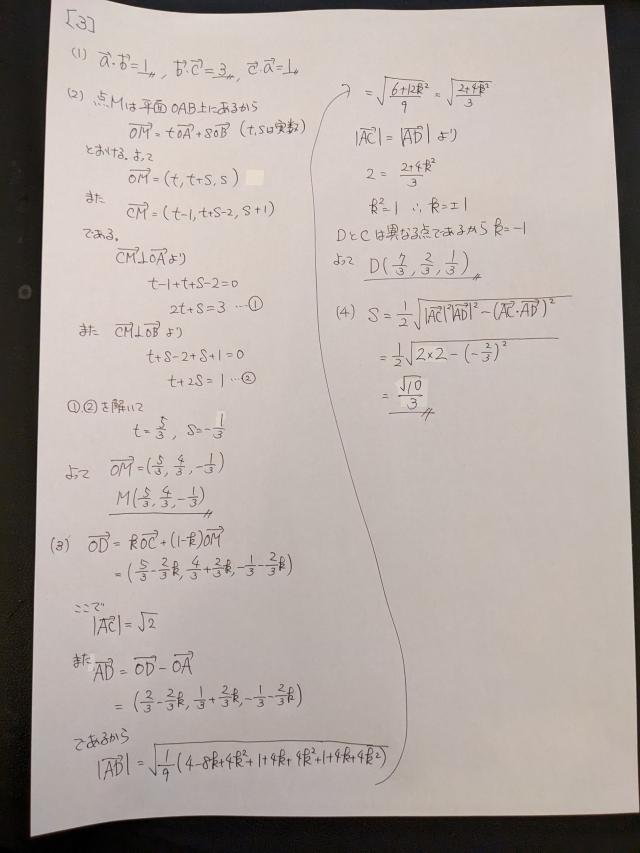 [3]
(1) a⃗・b⃗=1, b⃗・c⃗=3, c⃗・a⃗=1
(2) 点Mは平面OAB上にあるから
OM⃗=tOA⃗+sOB⃗ (t,sは実数)
とおける。よって
OM⃗=(t, t+s, s)
また
CM⃗=(t-1, t+s-2, s+1)
である。
CM⃗⊥OA⃗より
t-1+t+s-2=0
2t+s=3 …①
また CM⃗⊥OB⃗ より
t+s-2+s+1=0
t+2s=1 …②
①,②を解いて
t=5/3, s=-1/3
よって OM⃗=(5/3, 4/3, -1/3)
M(5/3, 4/3, -1/3)
(3) OD⃗=kOC⃗+(1-k)OM⃗
=(5/3-2/3k, 4/3+2/3k, -1/3-2/3k)
ここで
|AC⃗|=√2
また AD⃗=OD⃗-OA⃗
=(2/3-2/3k, 1/3+2/3k, -1/3-2/3k)
であるから
|AD⃗|=√(1/9(4-8k+4k²+1+4k+4k²+1+4k+4k²))
=√((6+12k²)/9)=√((2+4k²)/3)
|AC⃗|=|AD⃗|より
2=(2+4k²)/3
k²=1 ∴k=±1
DとCは異なる点であるからk=-1
よって D(7/3, 2/3, 1/3)
(4) S=1/2√(|AC⃗|²|AD⃗|²-(AC⃗・AD⃗)²)
=1/2√(2×2-(-2/3)²)
=√10/3